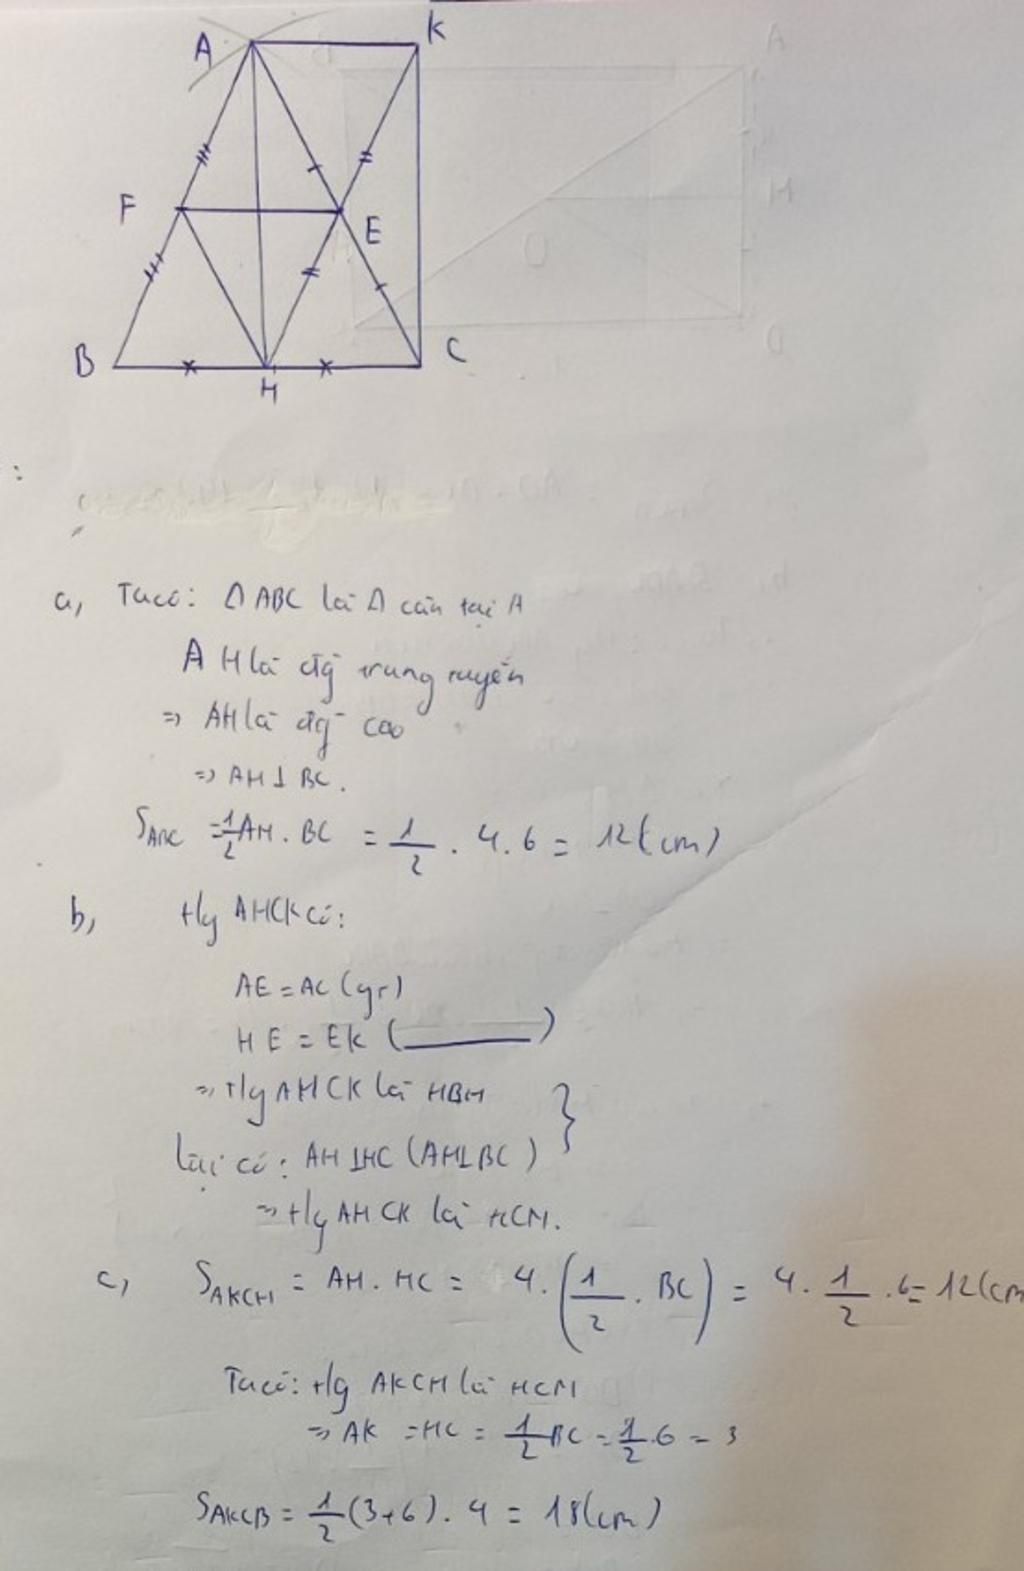 A
K
F
E
B
H
C
a, Ta có: Δ ABC là Δ cân tại A
AH là đg trung tuyến
=> AH là đg cao
=> AH ⊥ BC.
S_ABC = 1/2 AH . BC = 1/2 . 4 . 6 = 12 (cm)
b, t/g AHCK có:
AE = AC (gt)
HE = EK (———)
=> t/g AHCK là HBH }
lại có: AH ⊥ HC (AH ⊥ BC)
=> t/g AHCK là HCN.
c, S_AKCH = AH . HC = 4 . (1/2 . BC) = 4 . 1/2 . 6 = 12 (cm
Ta có: t/g AKCH là HCN
=> AK = HC = 1/2 BC = 1/2 . 6 = 3
S_AKCB = 1/2 (3+6) . 4 = 18 (cm)